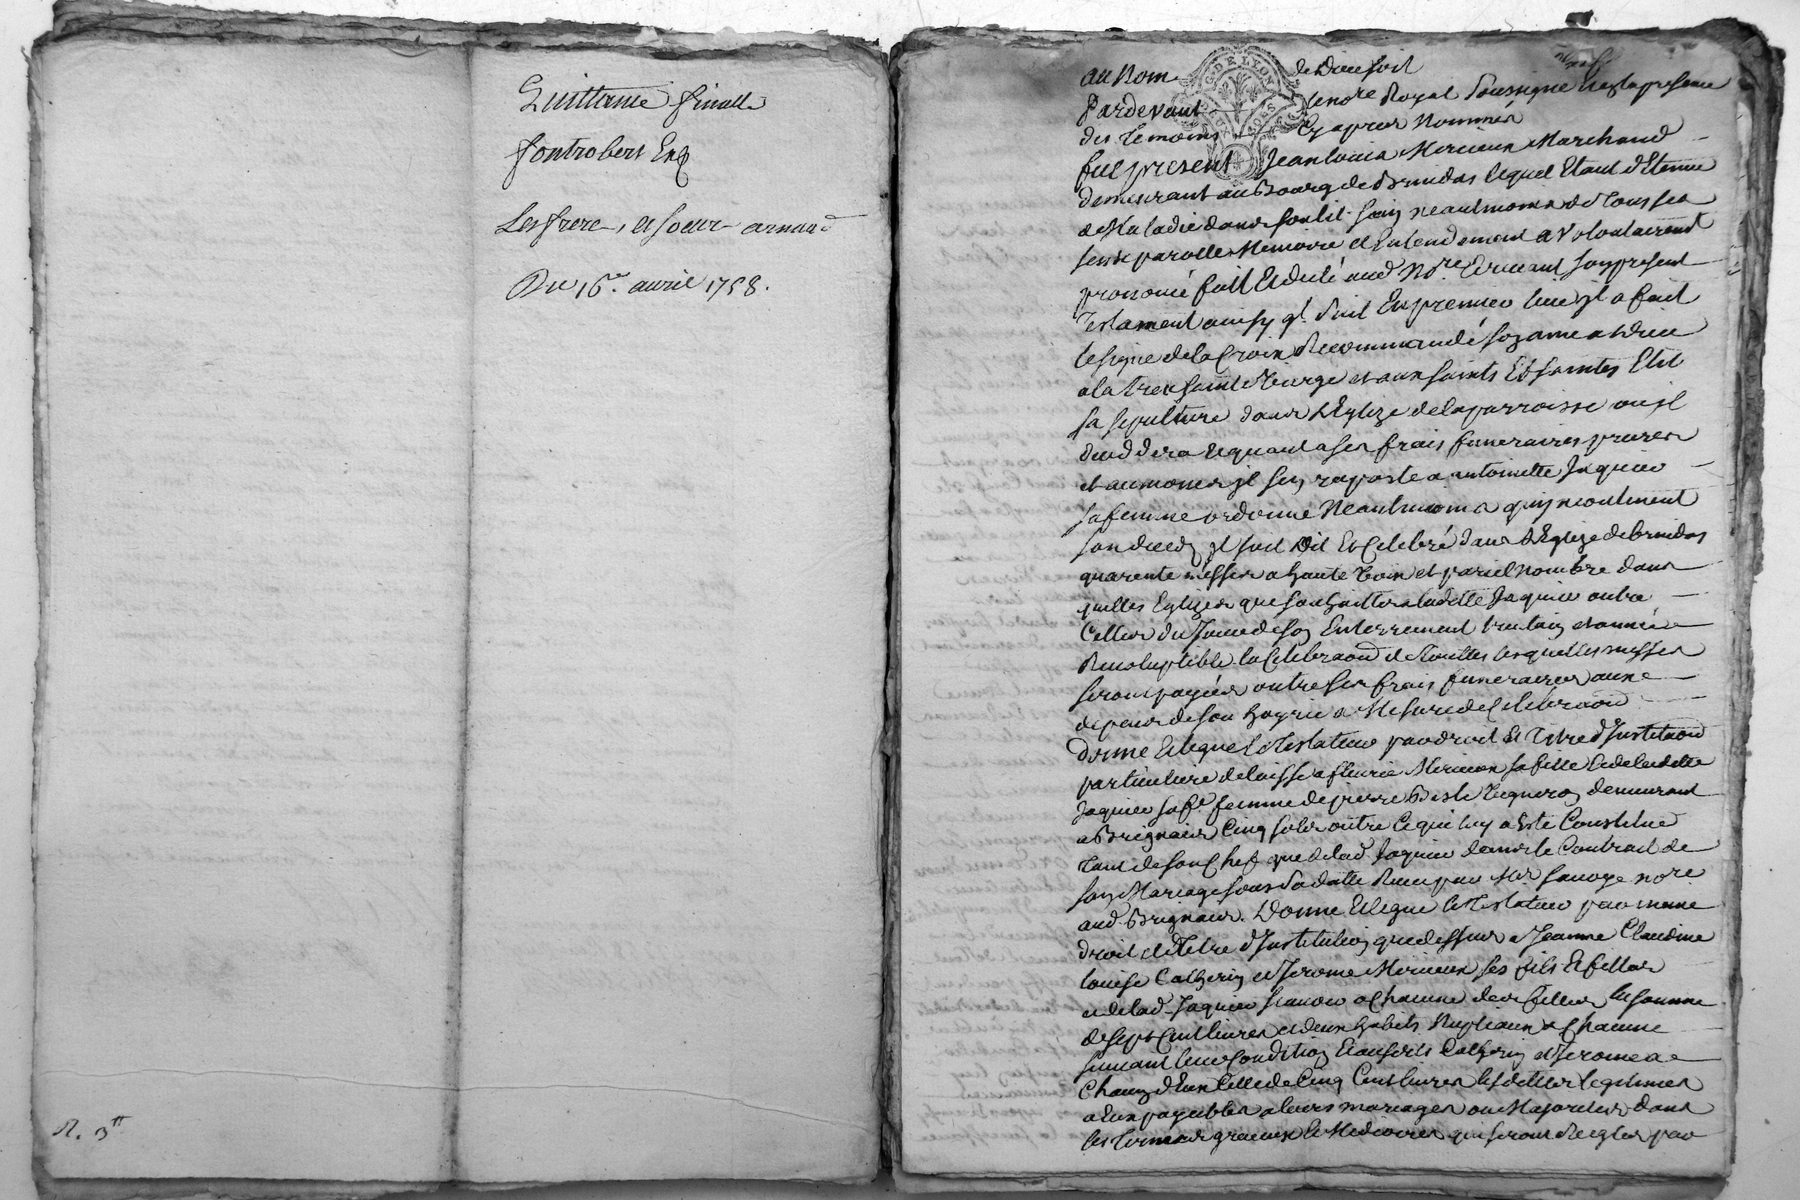 Quittance finalle
fontrobert Exp
Les frere, et soeur arnaud
Du 16e. avril 1758.
R. 3tt
G. DE LYON
au Nom de Dieu soit
Pardevant le nore Royal soussigné En la presence
des temoins Cy apres Nommés
fut present Jean louis Mericeux Marchand
demeurant au Bourg de Brindas lequel Etant detenu
de Maladie dans son lit sain neantmoins de tous ses
sens parolle Memoire et Entendement a volontairement
prononcé fait Et dicté aud Nore Ecrivant son present
testament ainsy ql suit En premier lieu jl a fait
le signe de la Croix Recommandé son ame a dieu
a la tres sainte Vierge et aux saints Et saintes Elit
sa sepulture dans l'Eglize de la parroisse ou jl
deceddera Et quant a ses frais funeraires prieres
et aumones jl s'en raporte a antoinette Jaquier
sa femme ordonne Neantmoins qu'jncontinent
son deceds jl soit dit Et Celebré dans l'Eglize de brindas
quarente messes a haute voix et pareil nombre dans
quelles Eglizes que souhaittera laditte Jaquier outre
Celles du Jour de son Enterrement
la Celebraon d'Jcelles lesquelles messes
seront payées outre ses frais funeraires aux
depens de son hoyrie a Mesure de Celebraon
donne Et legue le Testateur par droit Et titre d'Institaon
particuliere delaisse a fleurie Mericeux sa fille Et de laditte
Jaquier sa fe femme de pierre Vigneron demeurant
a Brignais Cinq sols outre Ce qui luy a Esté Constitué
tant de son Chef que de lad Jaquier dans le Contract de
son Mariage sous sa datte Reçu par Me sauvage nore
aud Brignais. Donne Et legue le Testateur par meme
droit et titre d'Institution que dessus a Jeanne Claudine
louise Catherin et Jerome Mericeux ses fils Et filles
et de lad Jaquier scavoir a Chacune des filles la somme
de sept Cent livres et deux habits Nuptiaux a Chacune
suivant leur Condition Et aux fils Catherin et Jerome a
Chacun d'Eux Celle de Cinq Cent livres lesdittes legitimes
a Eux payables a leurs mariages ou Majorités dans
les termes gracieux Et Mediocres qui seront Reglés par